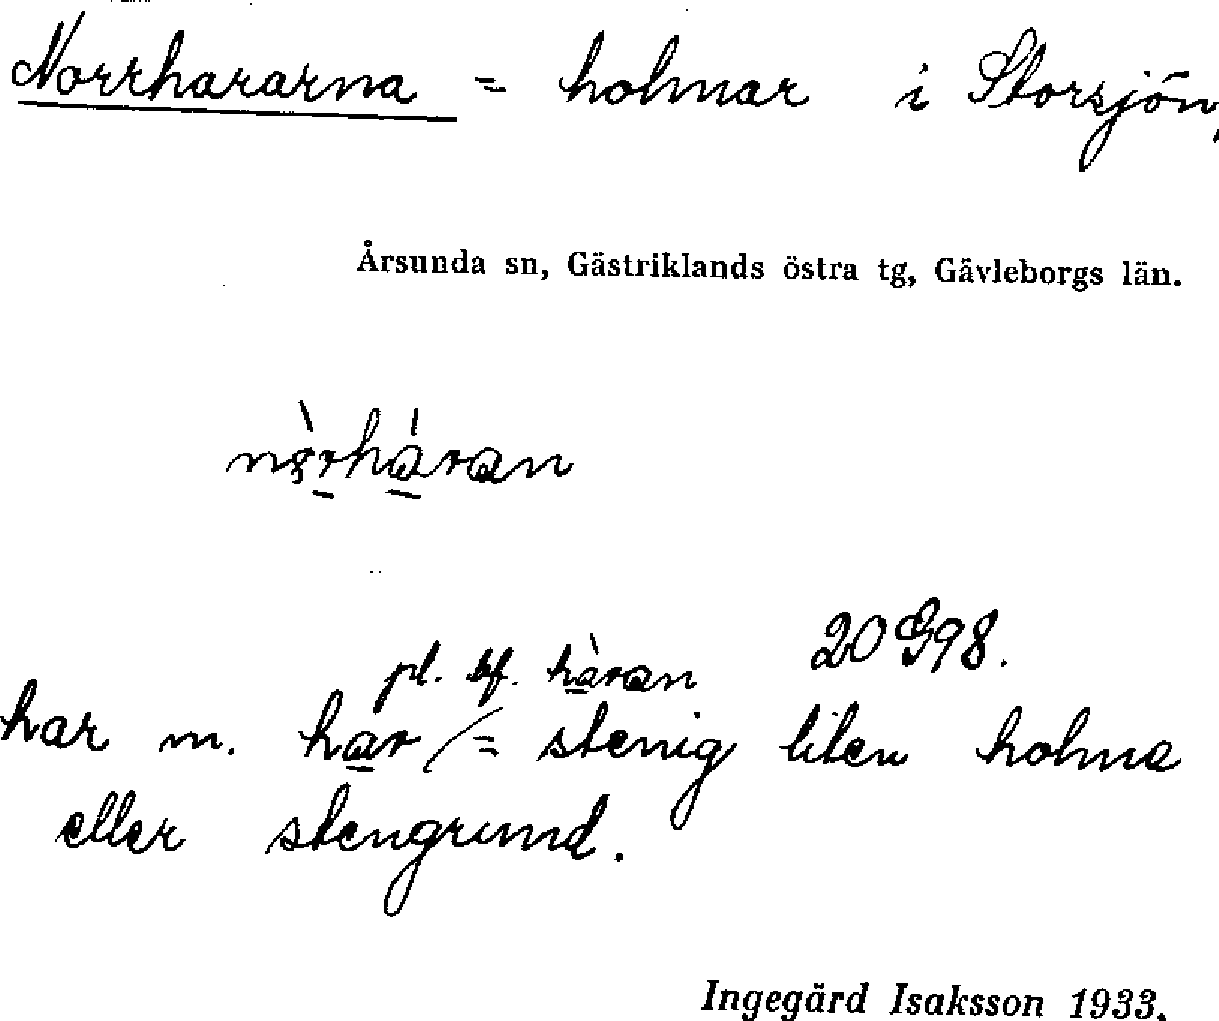 Norrhararna = holmar i Storsjön,
Årsunda sn, Gästriklands östra tg, Gävleborgs län.
pl. bf. hàran 20 G98.
har m. har /= stenig liten holme
eller stengrund.
Ingegärd Isaksson 1933.